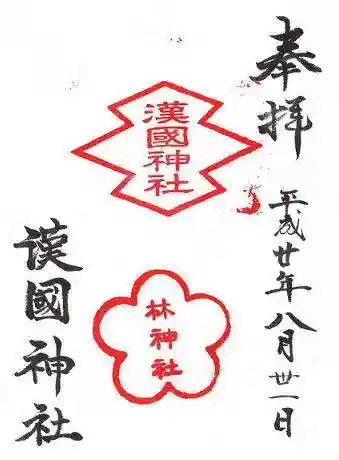 奉拝
平成廿年八月卅一日
漢國神社
林神社
漢國神社